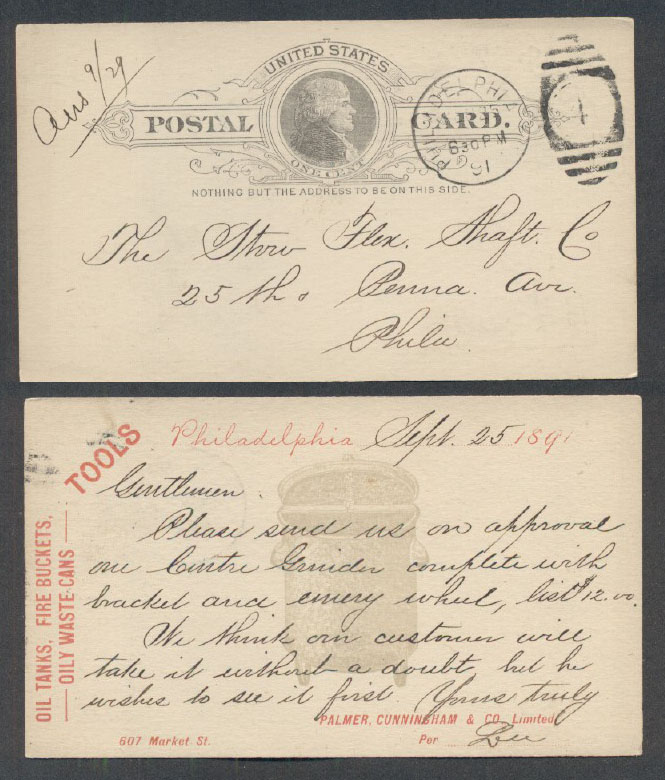 Ans 9/29
UNITED STATES
POSTAL CARD.
ONE CENT
NOTHING BUT THE ADDRESS TO BE ON THIS SIDE.
PHILADELPHI
630PM
91
1
The Stow Flex. Shaft. Co
25th & Penna. Ave.
Phila.
TOOLS
OIL TANKS, FIRE BUCKETS,
OILY WASTE-CANS
Philadelphia Sept. 25 1891
Gentlemen.
Please send us on approval
one Centre Grinder complete with
bracket and emery wheel, list $12.00.
We think our customer will
take it without a doubt but he
wishes to see it first Yours truly
PALMER, CUNNINGHAM & CO. Limited
607 Market St. Per